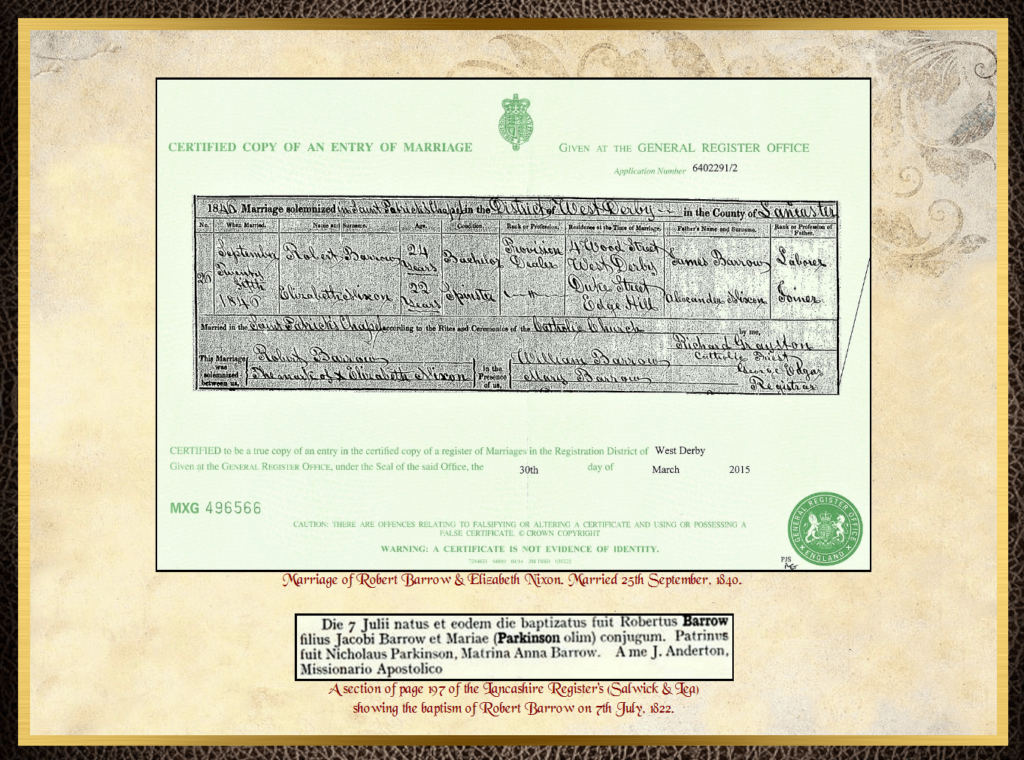 CERTIFIED COPY OF AN ENTRY OF MARRIAGE
GIVEN AT THE GENERAL REGISTER OFFICE
Application Number 6402291/2
1840 Marriage solemnized in Saint Patrick's Chapel in the District of West Derby in the County of Lancaster
No. When Married. Name and Surname. Age. Condition. Rank or Profession. Residence at the Time of Marriage. Father's Name and Surname. Rank or Profession of Father.
20 September Twenty fifth 1840
Robert Barrow 24 Years Bachelor Provision Dealer 4 Wood Street West Derby James Barrow Laborer
Elizabeth Nixon 22 Years Spinster Duke Street Edge Hill Alexander Nixon Joiner
Married in the Saint Patrick's Chapel according to the Rites and Ceremonies of the Catholic Church
by me,
Richard Grayston
Catholic Priest
George Edgar
Registrar
This Marriage was solemnized between us,
Robert Barrow
The mark of X Elizabeth Nixon
In the Presence of us,
William Barrow
Mary Barrow
CERTIFIED to be a true copy of an entry in the certified copy of a register of Marriages in the Registration District of West Derby
Given at the GENERAL REGISTER OFFICE, under the Seal of the said Office, the 30th day of March 2015
MXG 496566
CAUTION: THERE ARE OFFENCES RELATING TO FALSIFYING OR ALTERING A CERTIFICATE AND USING OR POSSESSING A
FALSE CERTIFICATE. © CROWN COPYRIGHT
WARNING: A CERTIFICATE IS NOT EVIDENCE OF IDENTITY.
GENERAL REGISTER OFFICE
ENGLAND
PJS
Marriage of Robert Barrow & Elizabeth Nixon. Married 25th September, 1840.
Die 7 Julii natus et eodem die baptizatus fuit Robertus Barrow
filius Jacobi Barrow et Mariae (Parkinson olim) conjugum. Patrinus
fuit Nicholaus Parkinson, Matrina Anna Barrow. A me J. Anderton,
Missionario Apostolico
A section of page 197 of the Lancashire Register's (Salwick & Lea)
showing the baptism of Robert Barrow on 7th July, 1822.